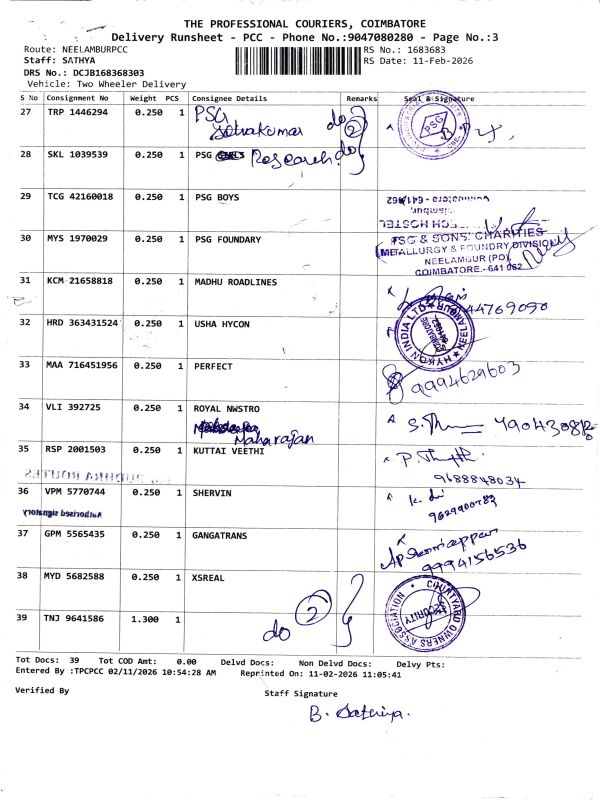 THE PROFESSIONAL COURIERS, COIMBATORE
Delivery Runsheet - PCC - Phone No.:9047080280 - Page No.:3
Route: NEELAMBURPCC RS No.: 1683683
Staff: SATHYA RS Date: 11-Feb-2026
DRS No.: DCJB168368303
Vehicle: Two Wheeler Delivery
S No Consignment No Weight PCS Consignee Details Remarks Seal & Signature
27 TRP 1446294 0.250 1 PSG do 2
Selvakumar
PSG
28 SKL 1039539 0.250 1 PSG Research do
29 TCG 42160018 0.250 1 PSG BOYS
Coimbatore - 641 062
30 MYS 1970029 0.250 1 PSG FOUNDARY
PSG & SONS' CHARITIES
METALLURGY & FOUNDRY DIVISION
NEELAMBUR (PO),
COIMBATORE - 641 062
31 KCM 21658818 0.250 1 MADHU ROADLINES
32 HRD 363431524 0.250 1 USHA HYCON
HYKON INDIA LTD
33 MAA 716451956 0.250 1 PERFECT 9994629603
34 VLI 392725 0.250 1 ROYAL NWSTRO
Maharajan
35 RSP 2001503 0.250 1 KUTTAI VEETHI
9688848034
36 VPM 5770744 0.250 1 SHERVIN
Authorised signatory
37 GPM 5565435 0.250 1 GANGATRANS
9994156536
38 MYD 5682588 0.250 1 XSREAL
COURTYARD OWNERS ASSOCIATION
SECURITY
39 TNJ 9641586 1.300 1 do 2
Tot Docs: 39 Tot COD Amt: 0.00 Delvd Docs: Non Delvd Docs: Delvy Pts:
Entered By :TPCPCC 02/11/2026 10:54:28 AM Reprinted On: 11-02-2026 11:05:41
Verified By Staff Signature
B. Sathiya.